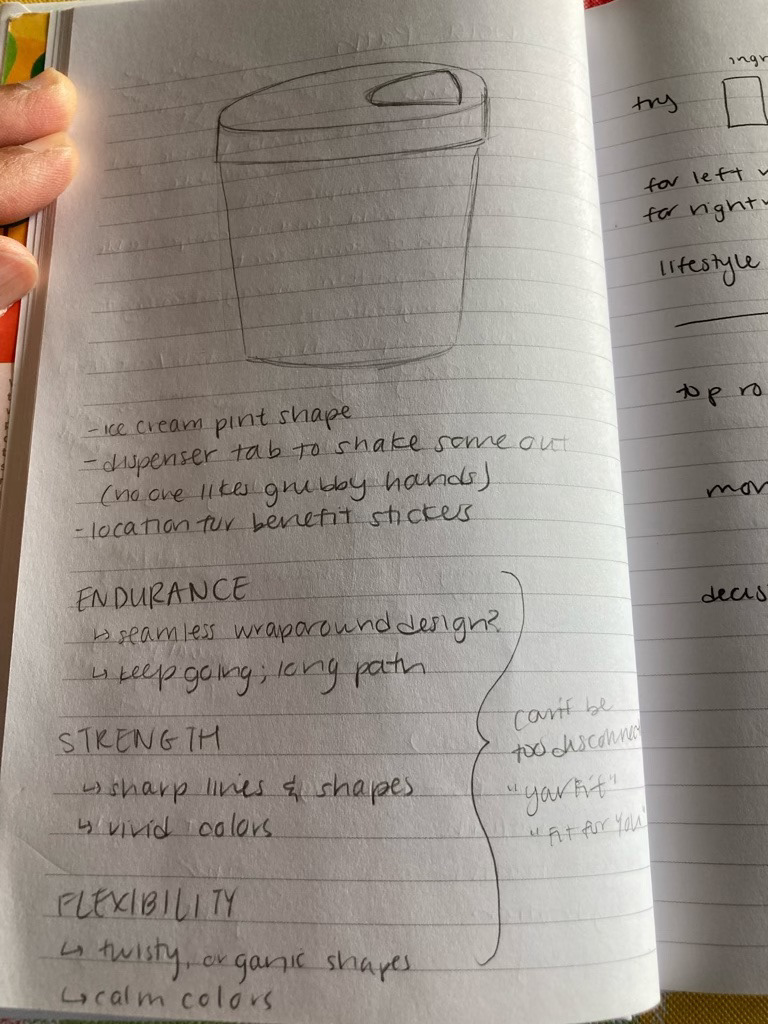 - ice cream pint shape
- dispenser tab to shake some out
(no one likes grubby hands)
- location for benefit stickers
ENDURANCE
↳ seamless wraparound design?
↳ keep going; long path
STRENGTH
↳ sharp lines & shapes
↳ vivid colors
FLEXIBILITY
↳ twisty, organic shapes
↳ calm colors
can't be
too disconnec
"yarFit"
"Fit for You"
ingr
try
for left
for right
lifestyle
top ro
mor
decis